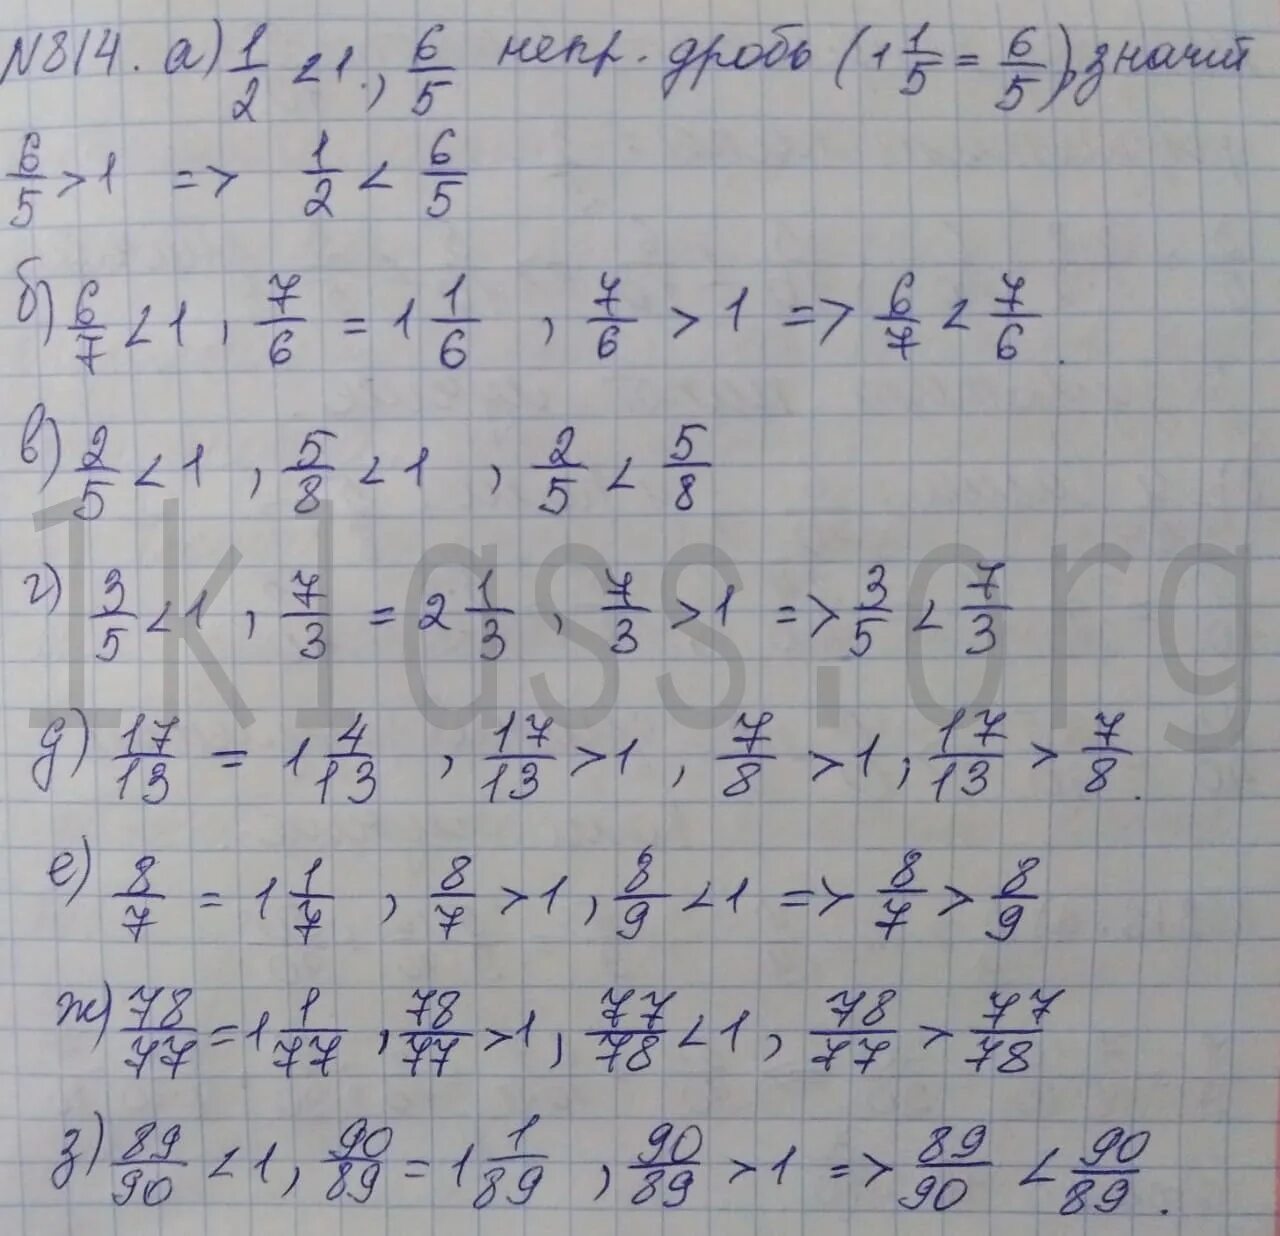 N814. а) 1/2 < 1, 6/5 непр. дробь (1 1/5 = 6/5), значит
6/5 > 1 => 1/2 < 6/5
б) 6/7 < 1, 7/6 = 1 1/6, 7/6 > 1 => 6/7 < 7/6.
в) 2/5 < 1, 5/8 < 1, 2/5 < 5/8
г) 3/5 < 1, 7/3 = 2 1/3, 7/3 > 1 => 3/5 < 7/3
д) 17/13 = 1 4/13, 17/13 > 1, 7/8 > 1, 17/13 > 7/8.
е) 8/7 = 1 1/7, 8/7 > 1, 8/9 < 1 => 8/7 > 8/9
ж) 78/77 = 1 1/77, 78/77 > 1, 77/78 < 1, 78/77 > 77/78
з) 89/90 < 1, 90/89 = 1 1/89, 90/89 > 1 => 89/90 < 90/89.
1klass.org